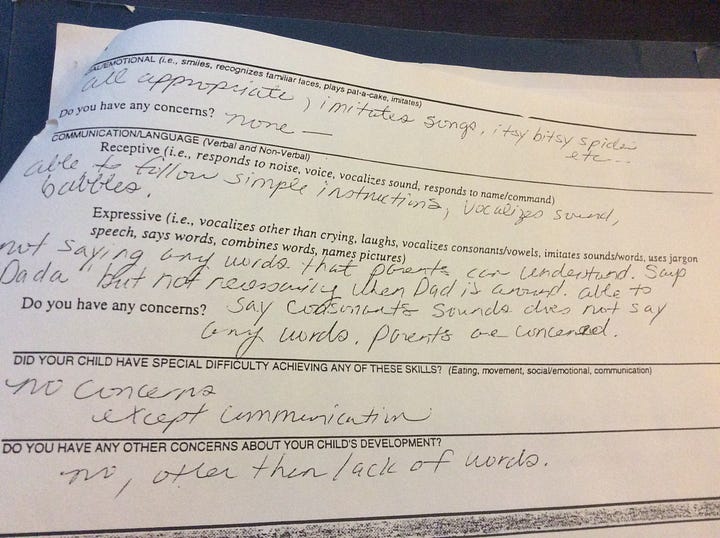 AL/EMOTIONAL (i.e., smiles, recognizes familiar faces, plays pat-a-cake, imitates)
all appropriate, imitates songs, itsy bitsy spider
etc...
Do you have any concerns? none —
COMMUNICATION/LANGUAGE (Verbal and Non-Verbal)
Receptive (i.e., responds to noise, voice, vocalizes sound, responds to name/command)
able to follow simple instructions, vocalizes sound,
babbles.
Expressive (i.e., vocalizes other than crying, laughs, vocalizes consonants/vowels, imitates sounds/words, uses jargon
speech, says words, combines words, names pictures)
not saying any words that parents can understand. Says
"Dada" but not necessarily when Dad is around. able to
Do you have any concerns? say consonants sounds does not say
any words. parents are concerned.
DID YOUR CHILD HAVE SPECIAL DIFFICULTY ACHIEVING ANY OF THESE SKILLS? (Eating, movement, social/emotional, communication)
no concerns
except communication
DO YOU HAVE ANY OTHER CONCERNS ABOUT YOUR CHILD'S DEVELOPMENT?
no, other then lack of words.